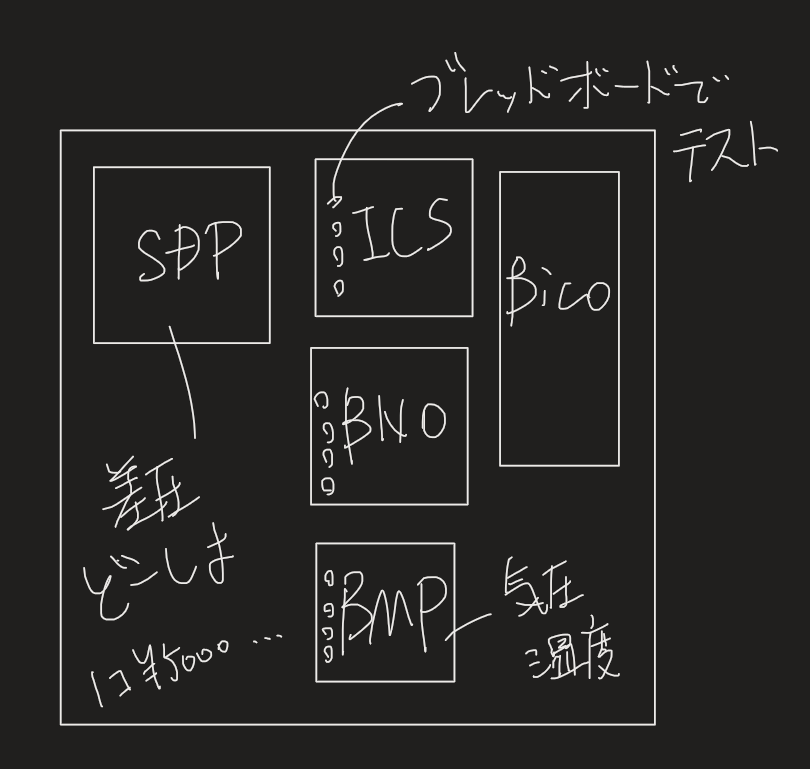 ブレッドボードで
テスト
SDP
ICS
Bico
BNO
差圧
どーしよ
1コ¥5000…
BMP
気圧
温度